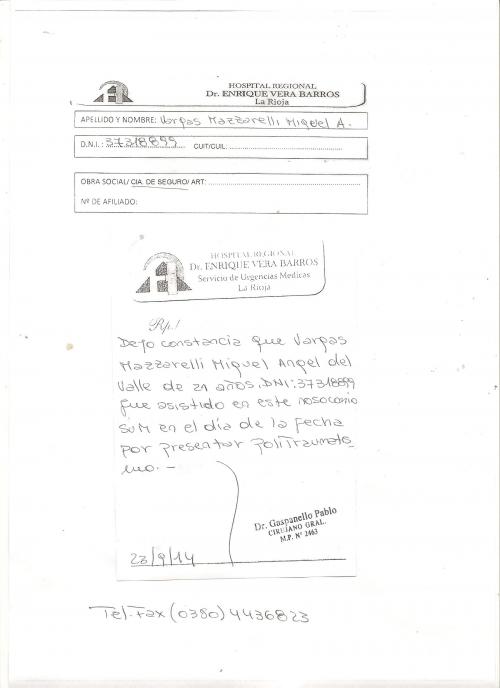 HOSPITAL REGIONAL
Dr. ENRIQUE VERA BARROS
La Rioja
APELLIDO Y NOMBRE: Vargas Mazzarelli Miguel A.
D.N.I.: 37318899 CUIT/CUIL:
OBRA SOCIAL/ CIA. DE SEGURO/ ART:
Nº DE AFILIADO:
HOSPITAL REGIONAL
Dr. ENRIQUE VERA BARROS
Servicio de Urgencias Medicas
La Rioja
Rp./
Dejo constancia que Vargas
Mazzarelli Miguel Angel del
Valle de 21 años. DNI: 37318899
fue asistido en este nosocomio
SUM en el día de la fecha
por presentar Politraumatis
mo. -
Dr. Gaspanello Pablo
CIRUJANO GRAL.
M.P. Nº 2463
23/9/14
Tel-Fax (0380) 4436823